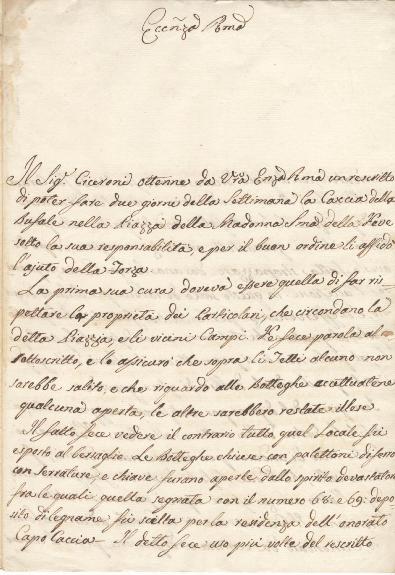 Eccñza Rma
Il Sigr. Ciceroni ottenne da Vra Enza Rma un rescritto
di poter fare due giorni della Settimana la Caccia della
Bufale nella Piazza della Madonna Sma della Neve
sotto la sua responsabilità e per il buon ordine li affidò
l'ajuto della Forza.
La prima sua cura doveva essere quella di far ris=
pettare le proprietà dei Particolari, che circondano la
detta Piazza, e li vicini Campi. Ne fece parola al
sottoscritto, e lo assicurò che sopra li Tetti alcuno non
sarebbe salito, e che riguardo alle Botteghe accettuatene
qualcuna aperta, le altre sarebbero restate illese.
Il fatto fece vedere il contrario tutto quel Locale fù
esposto al bersaglio. Le Botteghe chiuse con palettoni di ferro
con serrature, e chiave furano aperte dallo spirito devastatore
fra le quali quella segnata con il numero 68. e 69. depo=
sito di legname fù scelta per la residenza dell'onorato
Capo Caccia — Il detto fece uso più volte del rescritto